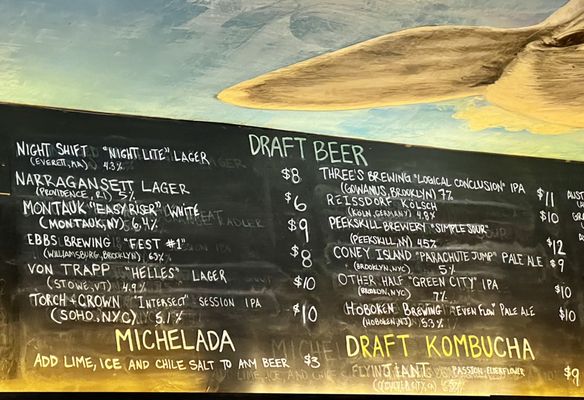 DRAFT BEER
NIGHT SHIFT "NIGHT LITE" LAGER
(EVERETT, MA) 4.3%
$8
NARRAGANSETT LAGER
(PROVIDENCE, RI) 5%
$6
MONTAUK "EASY RISER" WHITE
(MONTAUK, NY) 6.4%
$9
EBBS BREWING "FEST #1"
(WILLIAMSBURG, BROOKLYN)
$8
VON TRAPP "HELLES" LAGER
(STOWE, VT) 4.9%
$10
TORCH + CROWN "INTERSECT" SESSION IPA
(SOHO, NYC) 5.1%
$10
MICHELADA
ADD LIME, ICE AND CHILE SALT TO ANY BEER $3
THREE'S BREWING "LOGICAL CONCLUSION" IPA
(GOWANUS, BROOKLYN) 7%
$11
REISSDORF KÖLSCH
(KÖLN, GERMANY) 4.8%
$10
PEEKSKILL BREWERY "SIMPLE SOUR"
(PEEKSKILL, NY) 4.5%
$12
CONEY ISLAND "PARACHUTE JUMP" PALE ALE
(BROOKLYN, NYC) 5%
$9
OTHER HALF "GREEN CITY" IPA
(BROOKLYN, NYC) 7%
$10
HOBOKEN BREWING "EVEN FLOW" PALE ALE
(HOBOKEN, NJ) 5.3%
$10
DRAFT KOMBUCHA
FLYING PASSION ELDERFLOWER
$9